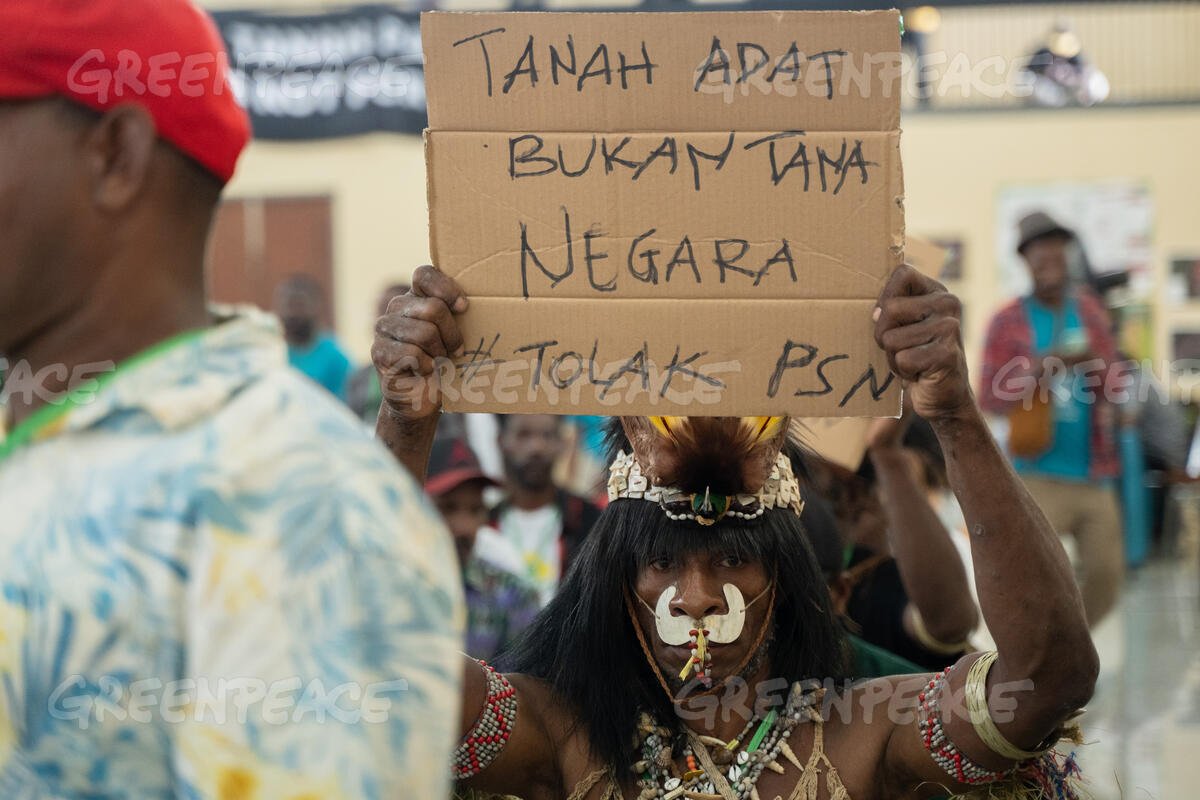 TANAH ADAT
BUKAN TANA
NEGARA
#TOLAK PSN
GREENPEACE
GREENPEACE
GREENPEACE
GREENPEACE
GREENPEACE
GREENPEACE
GREENPEACE